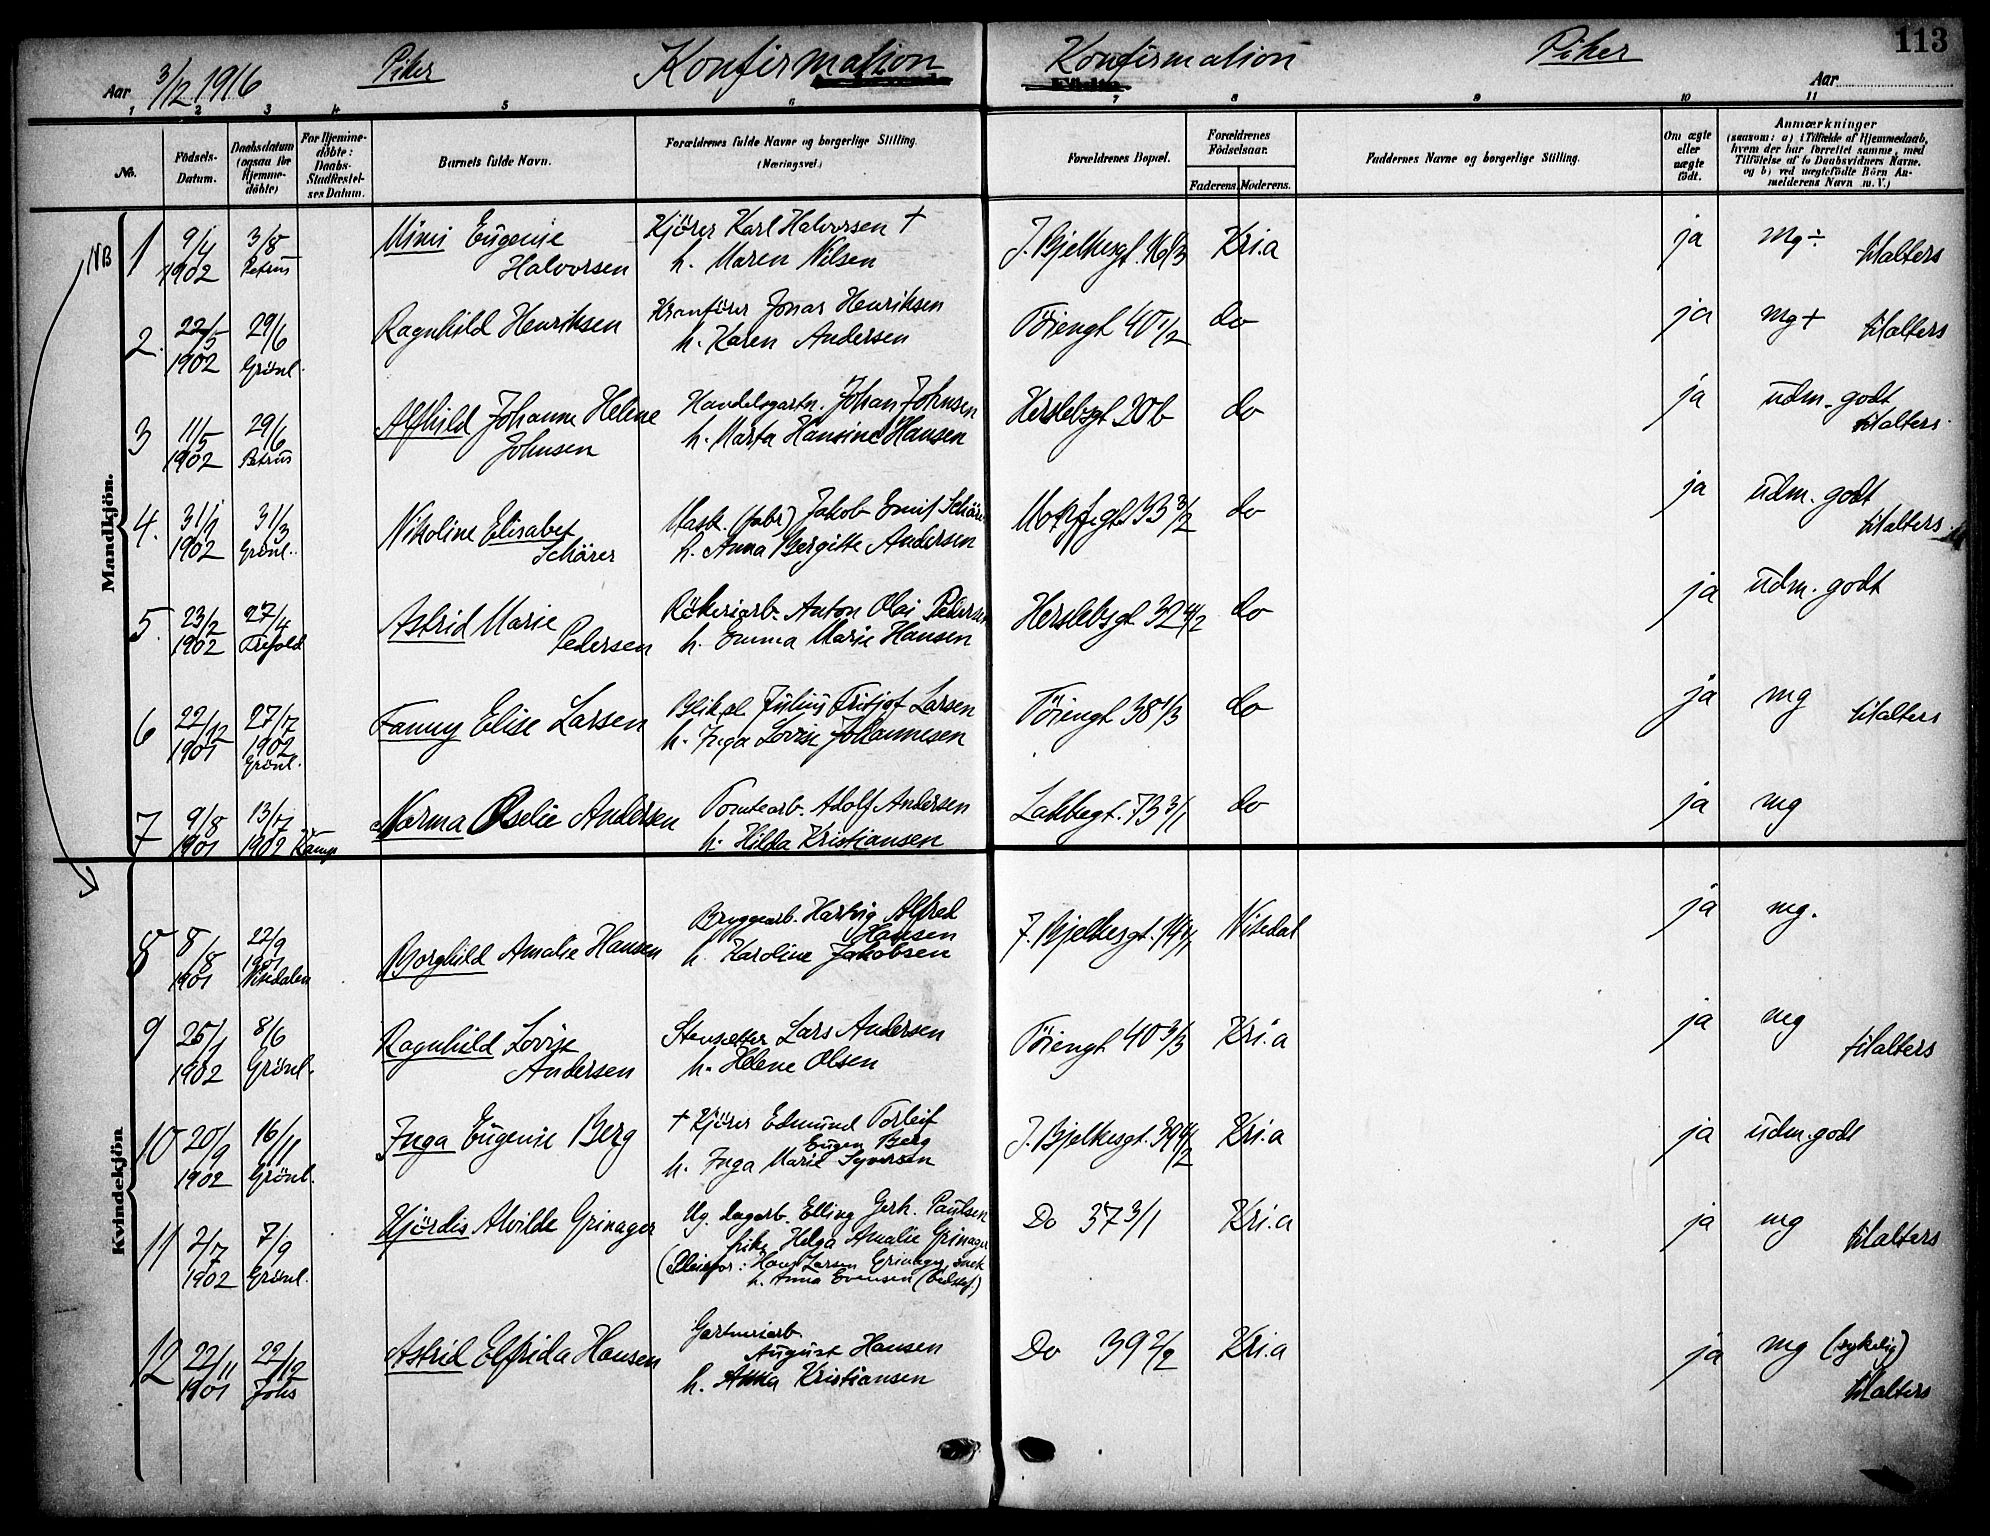 113
3/12 1916 Piker Konfirmation Konfirmation Piker
Aar Aar
1 2 3 4 5 6 7 8 9 10 11
No.
Födsels-
Datum.
Daabsdatum
(ogsaa for
Hjemme-
döbte)
For Hjemme-
döbte:
Daabs-
Stadfæstel-
ses Datum.
Barnets fulde Navn.
Forældrenes fulde Navne og borgerlige Stilling.
(Næringsvei.)
Forældrenes Bopæl.
Forældrenes
Födselsaar.
Faderens. Moderens.
Faddernes Navne og borgerlige Stilling.
Om ægte
eller
uægte
födt.
Anmærkninger
(saasom: a) i Tilfælde af Hjemmedaab,
hvem der har forrettet samme, med
Tilföielse af to Daabsvidners Navne.
og b) ved uægtefödte Börn An-
melderens Navn m. V.)
Mandkjön.
NB
1 9/4 3/8 Mimi Eugenie Kjörer Karl Halvorsen + J. Bjelkesgt. 16/3 Kri.a ja mg ÷
1902 Petrus Halvorsen h. Maren Nilsen tilalters
2. 22/5 29/6 Ragnhild Henriksen Kranförer Jonas Henriksen Töiengt 40 1/2 do ja mg +
1902 Grönl. h. Karen Andersen tilalters
3 11/5 29/6 Alfhild Johanne Helene Handelsgartn. Johan Johnsen Herslebsgt 20b do ja udm. godt
1902 Petrus Johnsen h. Marta Hansine Hansen tilalters.
4. 31/1 31/3 Nikoline Elisabet Mask. (fabr) Jakob Emil 33 3/2 do ja udm. godt
1902 Grönl. Schärer h. Anna Bergitte Andersen tilalters
5. 23/2 27/4 Astrid Marie Rökeriarb. Anton Olai Pedersen Herslebsgt 32 4/2 do ja udm. godt
1902 Pedersen h. Emma Marie Hansen
6 22/12 27/7 Fanny Elise Larsen Bliksl Julius Fritjof Larsen Töiengt 38 1/3 do ja mg
1901 1902 h. Inga Lovise Johannesen tilalters
Grönl.
7 9/8 13/7 Norma Oselie Andersen Tomtearb. Adolf Andersen Lakkegt. 73 3/1 do ja mg
1901 1902 Kamp h. Hilda Kristiansen
Kvindekjön
8 8/8 22/9 Borghild Amalie Hansen Bryggearb. Hartvig Alfred J. Bjelkesgt. ja mg.
1901 1901 Hansen
h. Karoline Jakobsen
9 25/1 8/6 Ragnhild Lovise Stensætter Lars Andersen Töiengt 40 3/3 Kri.a ja mg
1902 Grönl. Andersen h. Helene Olsen tilalters
10 20/9 16/11 Inga Eugenie Berg + Kjörer Edmund Torleif J. Bjelkesgt. 39 4/2 Kri.a ja udm. godt
1902 Grönl. Eugen Berg
h. Inga Marie Syversen
11 2/7 7/9 Hjördis Alvilde Grinager Ug. lagerb. Elling Gerh. Paulsen Do 37 3/1 Kri.a ja mg
1902 Grönl. frkn Helga Amalie Grinager tilalters
(Pleiefor: Hans Larsen Grinager, snek
h. Anna Evensen (Bedstef.)
12 22/11 22/12 Astrid Elfrida Hansen Gartneriarb. Do 39 2/2 Kri.a ja mg (sykelig)
1901 Johs August Hansen tilalters
h. Anna Kristiansen